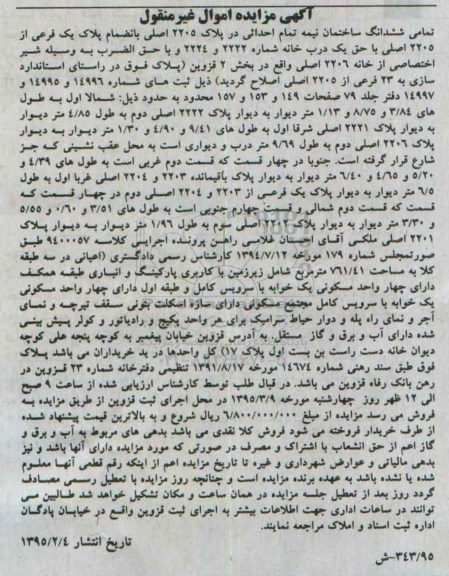 آگهی مزایده اموال غیرمنقول
تمامی ششدانگ ساختمان نیمه تمام احداثی در پلاک ۲۲۰۵ اصلی بانضمام پلاک یک فرعی از
۲۲۰۵ اصلی با حق یک درب خانه شماره ۲۲۲۲ و ۲۲۲۴ و با حق الضرب به وسیله شیر
اختصاصی از خانه ۲۲۰۶ اصلی واقع در بخش ۲ قزوین (پلاک فوق در راستای استاندارد
سازی به ۲۳ فرعی از ۲۲۰۵ اصلی اصلاح گردید) ذیل ثبت های شماره ۱۴۹۹۶ و ۱۴۹۹۵ و
۱۴۹۹۷ دفتر جلد ۷۹ صفحات ۱۴۹ و ۱۵۳ و ۱۵۷ محدود به حدود ذیل: شمالا اول به طول
های ۳/۸۴ و ۸/۷۵ و ۱/۱۳ متر دیوار به دیوار پلاک ۲۲۲۲ اصلی دوم به طول ۴/۸۵ متر دیوار
به دیوار پلاک ۲۲۲۱ اصلی شرقا اول به طول های ۹/۴۱ و ۴/۹۰ و ۱/۳۰ متر دیوار به دیوار
پلاک ۲۲۰۶ اصلی دوم به طول ۹/۶۹ متر درب و دیواری است به محل عقب نشینی که جز
شارع قرار گرفته است. جنوبا در چهار قسمت که قسمت دوم غربی است به طول های ۴/۳۹ و
۵/۲۰ و ۴/۶۵ و ۶/۴۰ متر دیوار به دیوار پلاک باقیمانده ۲۲۰۳ و ۲۲۰۴ اصلی غربا اول به طول
۶/۵ متر دیوار به دیوار پلاک یک فرعی از ۲۲۰۳ و ۲۲۰۴ اصلی دوم در چهار قسمت که
قسمت که قسمت دوم شمالی و قسمت چهارم جنوبی است به طول های ۳/۵۱ و ۰/۶۰ و ۵/۵۵
و ۳/۳۰ متر دیوار به دیوار پلاک ۲۲۰۲ اصلی سوم به طول ۱/۹۶ متر دیوار به دیوار پلاک
۲۲۰۱ اصلی ملکی آقای احسان غلامی راهن پرونده اجرایی کلاسه ۹۴۰۰۰۵۷ طبق
صورتمجلس شماره ۱۷۹ مورخه ۱۳۹۴/۷/۱۲ کارشناس رسمی دادگستری (اعیانی در سه طبقه
کلا به مساحت ۷۶۱/۴۱ مترمربع شامل زیرزمین با کاربری پارکینگ و انباری طبقه همکف
دارای چهار واحد مسکونی یک خوابه با سرویس کامل و طبقه اول دارای چهار واحد مسکونی
یک خوابه با سرویس کامل مجتمع مسکونی دارای سازه اسکلت بتونی سقف تیرچه و نمای
آجر و نمای راه پله و دوار حیاط سرامیک برای هر واحد پکیج و رادیاتور و کولر پیش بینی
شده دارای آب و برق و گاز مستقل به آدرس قزوین خیابان پیغمبریه کوچه پنجه علی کوچه
دیوان خانه دست راست بن بست اول پلاک ۱۷) کل واحدها در ید خریداران می باشد پلاک
فوق طبق سند رهنی شماره ۱۴۶۷۴ مورخه ۱۳۹۱/۸/۱۷ تنظیمی دفترخانه شماره ۲۳ قزوین در
رهن بانک رفاه قزوین می باشد. در قبال طلب توسط کارشناس ارزیابی شده از ساعت ۹ صبح
الی ۱۲ ظهر روز چهارشنبه مورخه ۱۳۹۵/۳/۹ در محل اجرای ثبت قزوین از طریق مزایده به
فروش می رسد مزایده از مبلغ ۶/۸۰۰/۰۰۰/۰۰۰ ریال شروع و به بالاترین قیمت پیشنهاد شده
از طرف خریدار فروخته می شود فروش کلا نقدی می باشد بدهی های مربوط به آب و برق و
گاز اعم از حق انشعاب یا اشتراک و مصرف در صورتی که مورد مزایده دارای آنها باشد و نیز
بدهی مالیاتی و عوارض شهرداری و غیره تا تاریخ مزایده اعم از اینکه رقم قطعی آنها معلوم
شده یا نشده باشد به عهده برنده مزایده است و چنانچه روز مزایده با تعطیل رسمی مصادف
گردد روز بعد از تعطیل جلسه مزایده در همان ساعت و مکان تشکیل خواهد شد طالبین می
توانند در ساعات اداری جهت اطلاعات بیشتر به اجرای ثبت قزوین واقع در خیابان پادگان
اداره ثبت اسناد و املاک مراجعه نمایند.
تاریخ انتشار ۱۳۹۵/۲/۴
۳۴۳/۹۵-ش